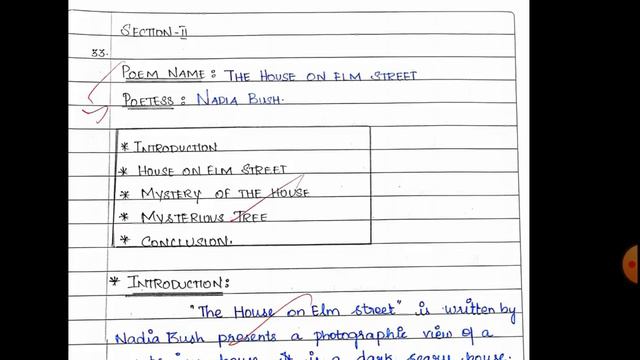 SECTION-II
33.
POEM NAME: THE HOUSE ON ELM STREET
POETESS: NADIA BUSH.
* INTRODUCTION
* HOUSE ON ELM STREET
* MYSTERY OF THE HOUSE
* MYSTERIOUS TREE
* CONCLUSION.
* INTRODUCTION:
"The House on Elm street" is written by
Nadia Bush presents a photographic view of a
house. it is a dark scary house.